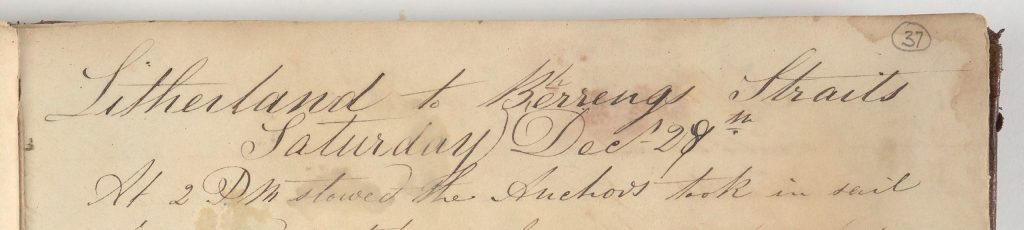 37
Litherland to Bherrengs Straits
Saturday Dec 28th
At 2 P.M stowed the Anchors took in sail